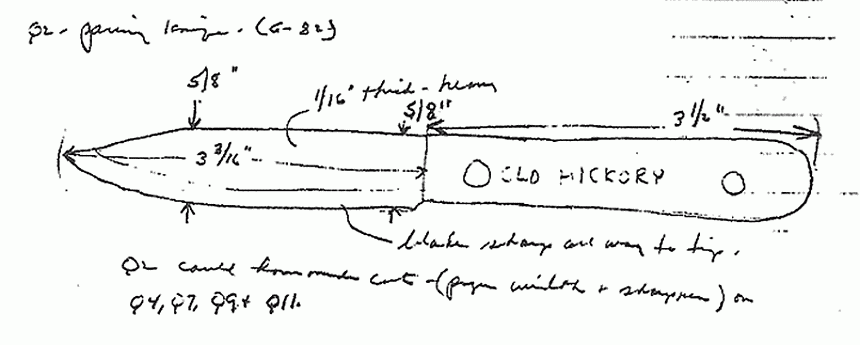 Q2 - paring knife. (G-82)
5/8"
1/16" thick - heavy
5/8"
3 1/2"
3 3/16"
OLD HICKORY
blade sharp all way to tip.
Q2 could have made cuts - (proper width + sharpness) on
Q4, Q7, Q9 + Q11.